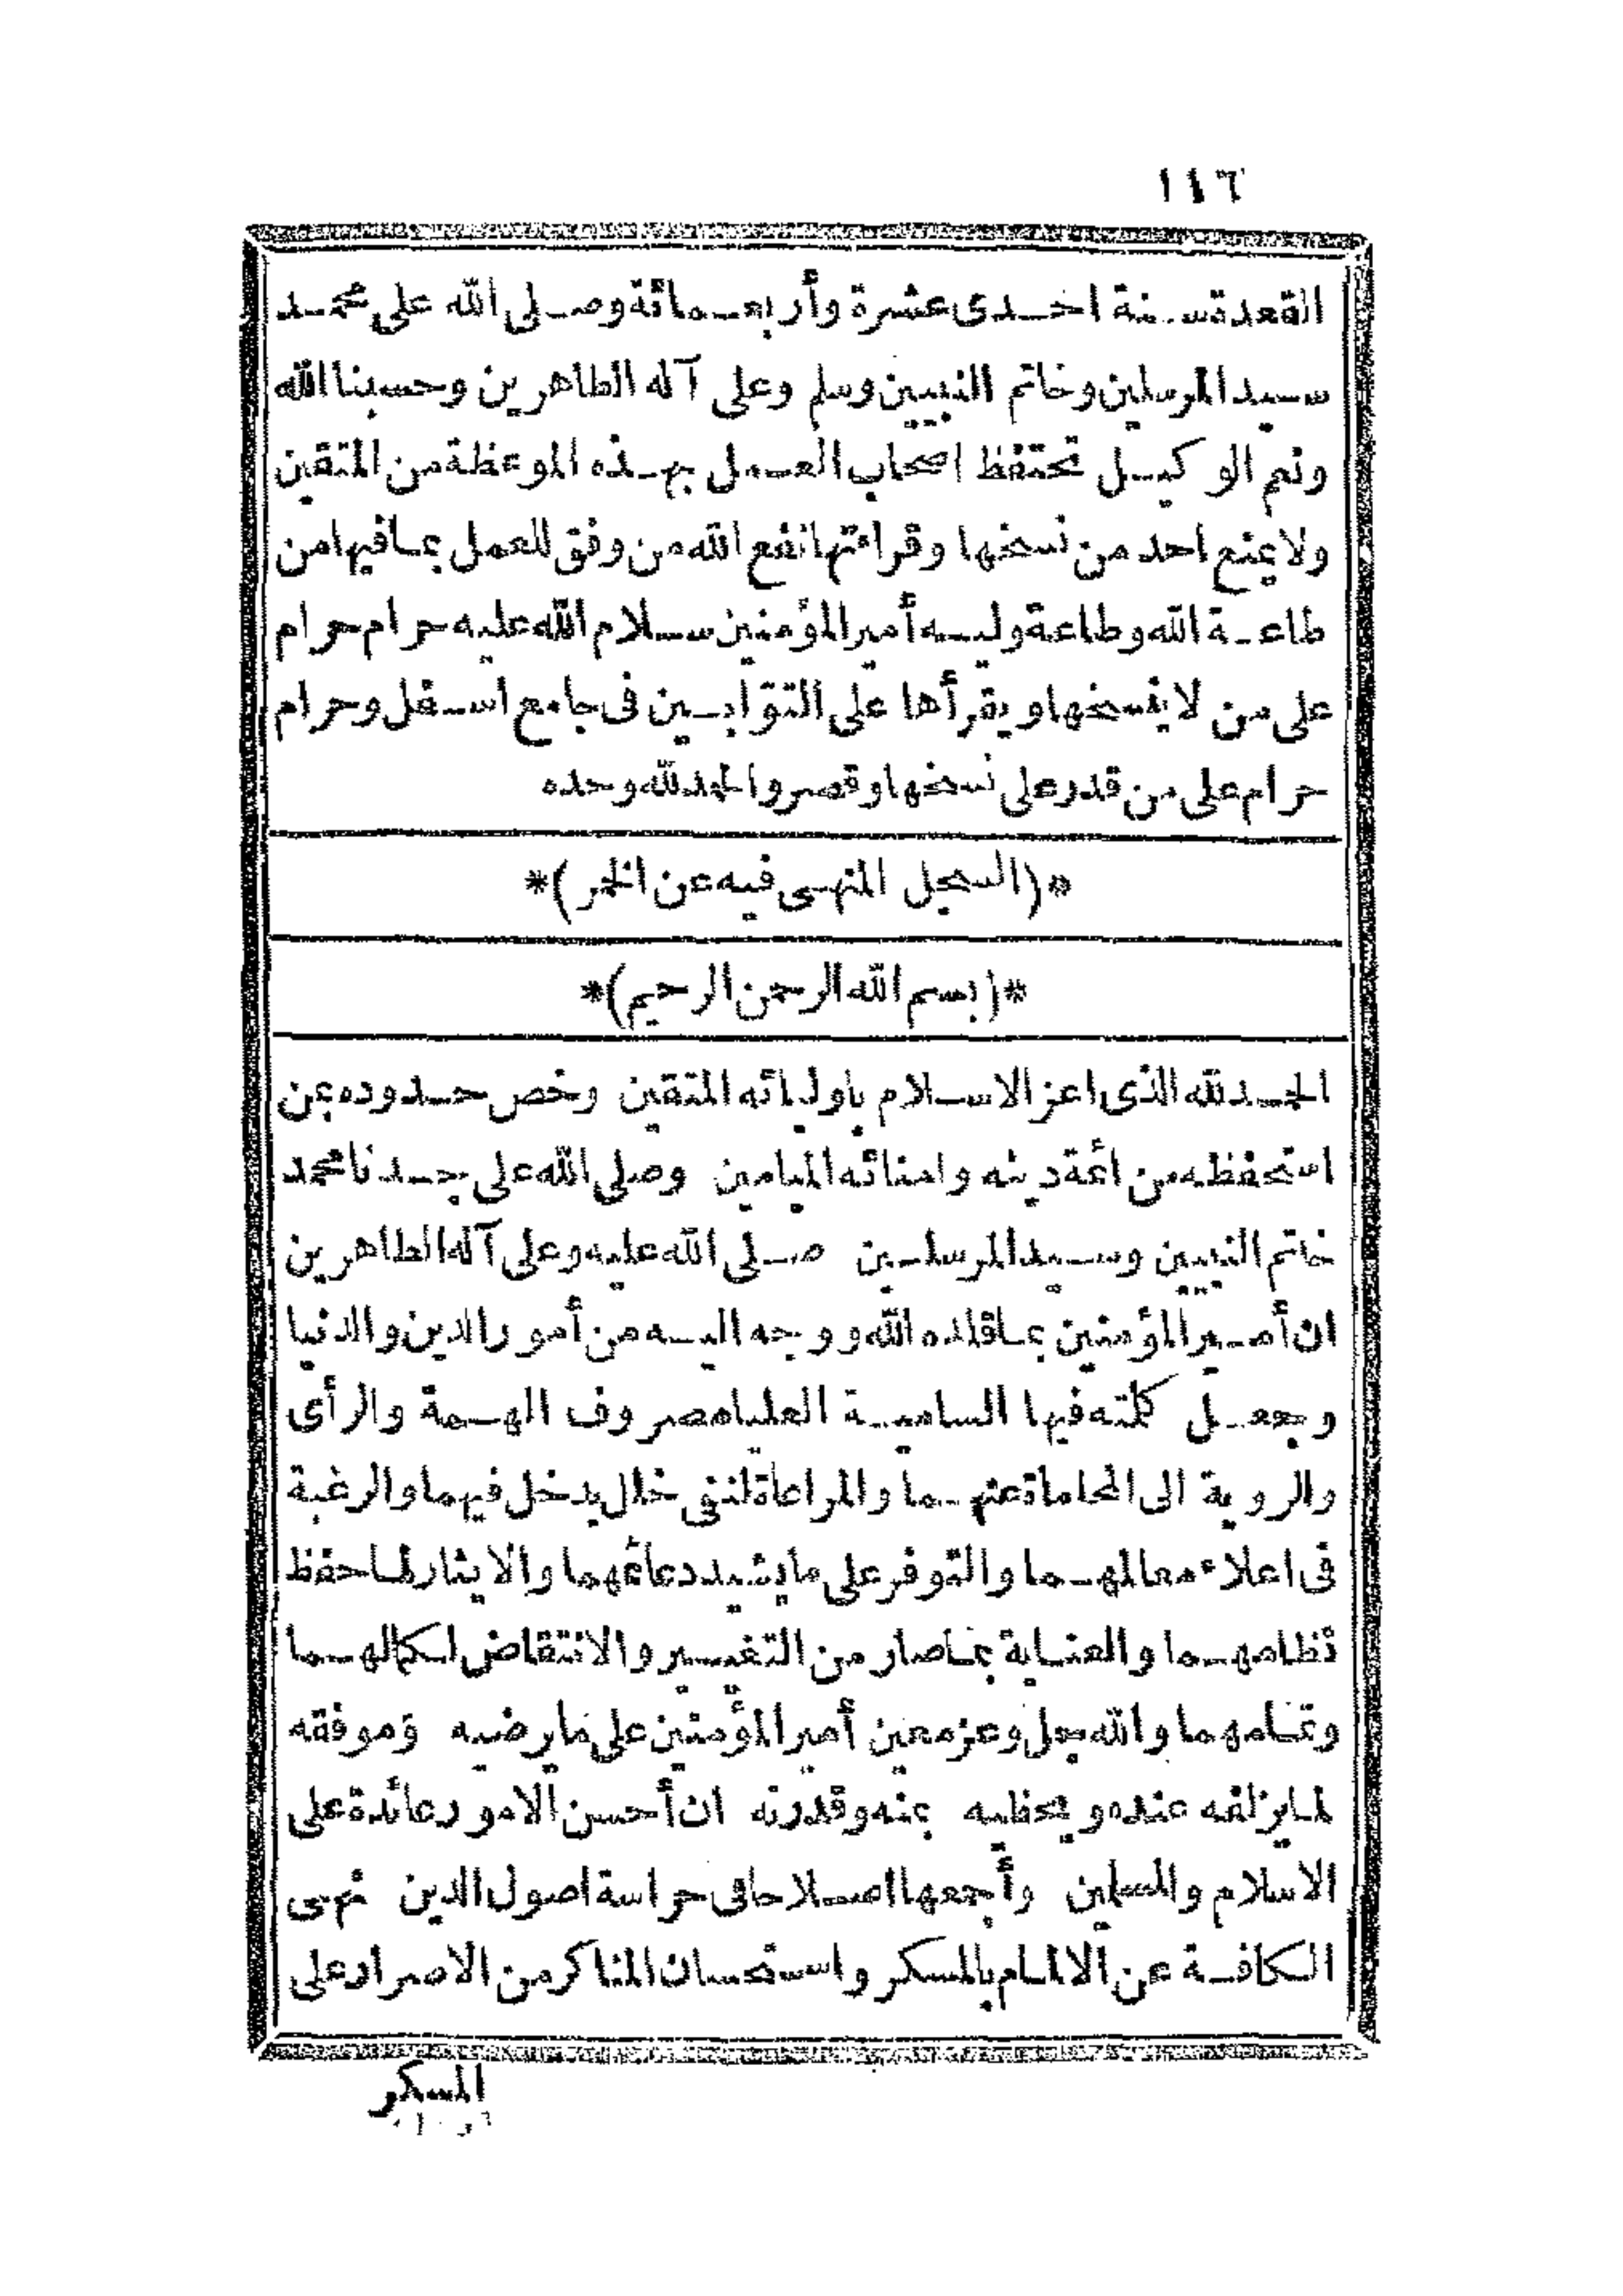 ١١٦
القعدة سنة احدى عشرة وأربعمائة وصلى الله على محمد
سيد المرسلين وخاتم النبيين وسلم وعلى آله الطاهرين وحسبنا الله
ونعم الوكيل تحتفظ اصحاب العمل بهذه الموعظة من المتقين
ولا يمنع احد من نسخها وقراءتها نفع الله من وفق للعمل بما فيها من
طاعة الله وطاعة وليه أمير المؤمنين سلام الله عليه حرام حرام
على من لا ينسخها ويقرأها على التوّابين فى جامع اسفل وحرام
حرام على من قدر على نسخها وقصر والحمد لله وحده
*(السجل المنهى فيه عن الخمر)*
*(بسم الله الرحمن الرحيم)*
الحمد لله الذى اعز الاسلام باوليائه المتقين وخص حدوده بمن
استحفظه من ائمة دينه وامنائه الميامين وصلى الله على جدنا محمد
خاتم النبيين وسيد المرسلين صلى الله عليه وعلى آله الطاهرين
ان أمير المؤمنين بما قلده الله ووجه اليه من أمور الدين والدنيا
وجعل كلمته فيها السامية العليا مصروف الهمة والرأى
والروية الى المحاماة عنهما والمراعاة لنفى خلال يدخل فيهما والرغبة
فى اعلاء معالمهما والتوفر على ما يشيد دعائمهما والايثار لما حفظ
نظامهما والعناية بما صار من التغيير والانتقاض لكمالهما
وتمامهما والله جل وعز معين أمير المؤمنين على ما يرضيه وموفقه
لما يزلفه عنده ويحظيه بمنه وقدرته ان أحسن الامور عائدة على
الاسلام والمسلمين وأجمعها اصلاحا فى حراسة اصول الدين نهى
الكافة عن الالمام بالمسكر واستحسان المناكر من الاصرار على
المسكر